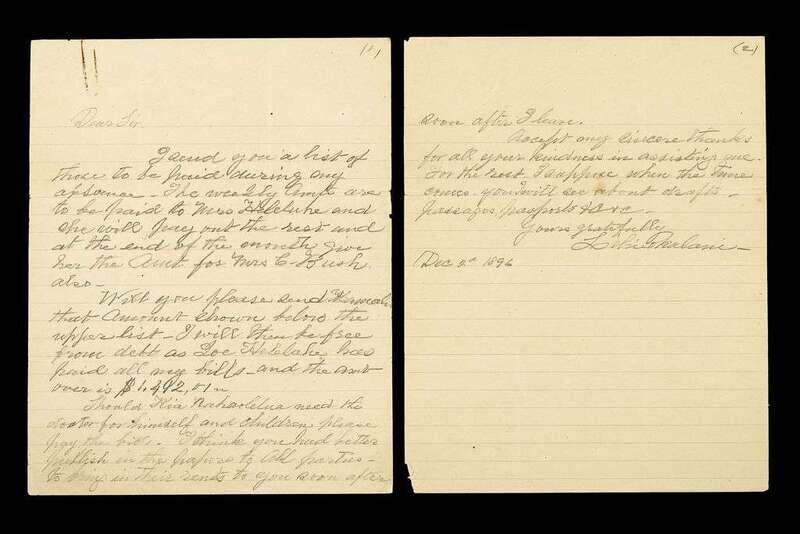 (1)
Dear Sir
I send you a list of
those to be paid during my
absence - The weekly Amts are
to be paid to Mrs Heleluhe and
she will pay out the rest and
at the end of the month give
her the Amt for Mrs C. Bush
also -
Will you please send
that Amount shown below the
upper list - I will then be free
from debt as Joe Heleluhe has
paid all my bills - and the amt
over is
Should Kia Nahaolelua need the
doctor for himself and children please
pay the bills. I think you had better
publish in the papers to all parties -
to bring in their rents to you soon after
(2)
soon after I leave.
Accept my sincere thanks
for all your kindness in assisting me.
For the rest I suppose when the time
comes you will see about drafts -
passages, passports &c &c
Yours gratefully
Liliuokalani -
Dec 1896